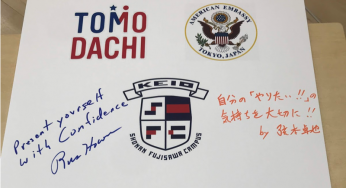 TOMO
DACHI
AMERICAN EMBASSY
TOKYO, JAPAN
KEIO
S
F
C
SHONAN FUJISAWA CAMPUS
Present yourself
with Confidence
自分の「やりたい!!」の
気持ちを大切に!!
by